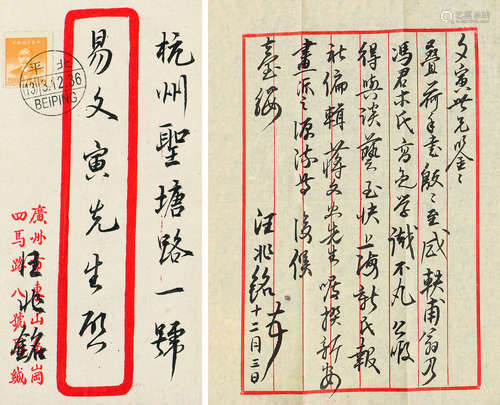 杭州聖塘路一號
易文寅先生啟
廣州市東山
四馬路八號
汪兆銘緘
北平
3.12.36
BEIPING
文寅世兄鑒
疊荷手書殷殷至感軼甫翁乃
馮君木氏高足學識不凡公暇
得與談藝至快上海新民報
社偏輯蔣文
先生嘱撰新安
畫派之源流
復候
臺綏
汪兆銘
十二月三日